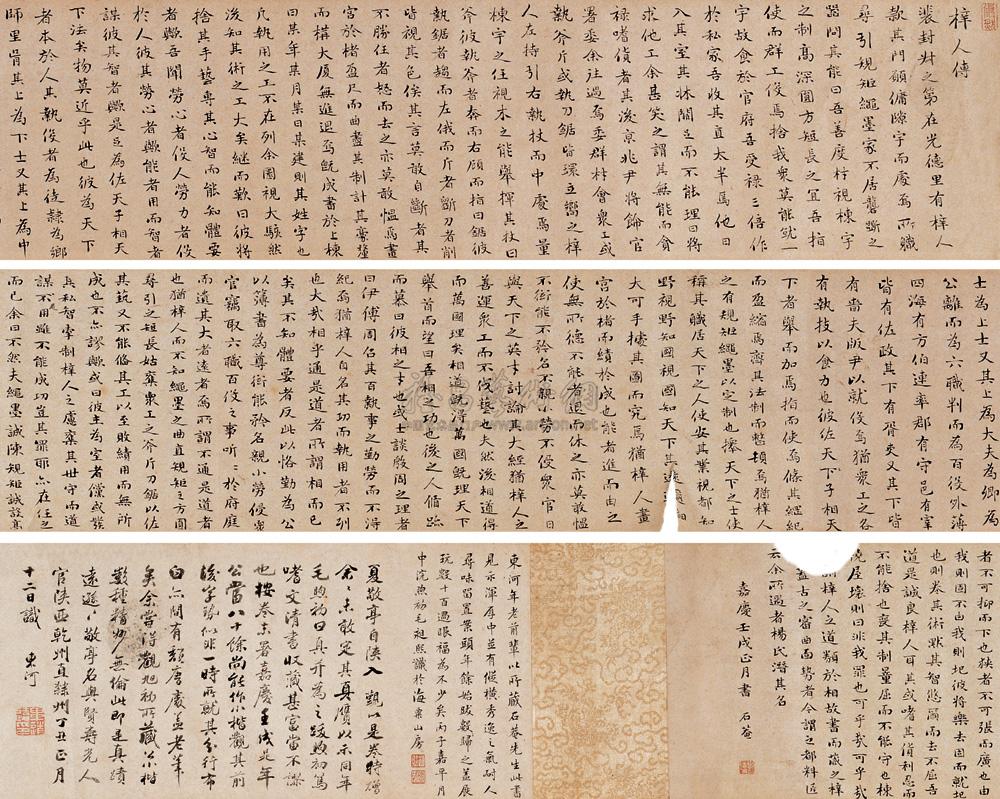 梓人傳
裴封叔之第在光德里有梓人
款其門願傭隟宇而處焉所職
尋引規矩繩墨家不居礱斲之
器問其能曰吾善度材視棟宇
之制高深圓方短長之宜吾指
使而群工役焉捨我衆莫能就一
宇故食於官府吾受祿三倍作
於私家吾收其直太半焉他日
入其室其牀闕足而不能理曰將
求他工余甚笑之謂其無能而貪
祿嗜貨者其後京兆尹將飾官
署余往過焉委群材會衆工或
執斧斤或執刀鋸皆環立嚮之梓
人左持引右執杖而中處焉量
棟宇之任視木之能舉揮其杖曰
斧彼執斧者奔而右顧而指曰鋸彼
執鋸者趨而左俄而斤者斲刀者削
皆視其色俟其言莫敢自斷者其
不勝任者怒而去之亦莫敢慍焉畫
宮於堵盈尺而曲盡其制計其毫釐
而構大廈無進退焉既成書於上棟
曰某年某月某日某建則其姓字也
凡執用之工不在列余圜視大駭然
後知其術之工大矣繼而歎曰彼將
捨其手藝專其心智而能知體要
者歟吾聞勞心者役人勞力者役
於人彼其勞心者歟能者用而智者
謀彼其智者歟是足為佐天子相天
下法矣物莫近乎此也彼為天下
者本於人其執役者為徒隸為鄉
師里胥其上為下士又其上為中
士為上士又其上為大夫為卿為
公離而為六職判而為百役外薄
四海有方伯連率郡有守邑有宰
皆有佐政其下有胥吏又其下皆
有嗇夫版尹以就役焉猶衆工之各
有執技以食力也彼佐天子相天
下者舉而加焉指而使焉條其綱紀
而盈縮焉齊其法制而整頓焉猶梓人
之有規矩繩墨以定制也擇天下之士使
稱其職居天下之人使安其業視都知
野視野知國視國知天下其
大可手據其圖而究焉猶梓人畫
宮於堵而績於成也能者進而由之
使無所德不能者退而休之亦莫敢慍
不衒能不矜名不親小勞不侵衆官日
與天下之英才討論其大經猶梓人之
善運衆工而不伐藝也夫然後相道得
而萬國理矣相道既得萬國既理天下
舉首而望曰吾相之功也後之人循跡
而慕曰彼相之才也或士談殷周之理者
曰伊傅周召其百執事之勤勞而不得
紀焉猶梓人自名其功而執用者不列
也大哉相乎通是道者所謂相而已
矣其不知體要者反此以恪勤為公
以簿書為尊衒能矜名親小勞侵衆
官竊取六職百役之事听听於府庭
而遺其大者遠者焉所謂不通是道者
也猶梓人而不知繩墨之曲直規矩之方圓
尋引之短長姑奪衆工之斧斤刀鋸以佐
其藝又不能備其工以至敗績用而無所
成也不亦謬歟或曰彼主為室者儻或發
其私智牽制梓人之慮奪其世守而道
謀是用雖不能成功豈其罪耶亦在任之
而已余曰不然夫繩墨誠陳規矩誠設高
者不可抑而下也狹者不可張而廣也由
我則固不由我則圮彼將樂去固而就圮
也則卷其術默其智悠爾而去不屈吾
道是誠良梓人耳其或嗜其貨利忍而
不能捨也喪其制量屈而不能守也棟
橈屋壞則曰非我罪也可乎哉可乎哉
謂梓人之道類於相故書而藏之梓
人蓋古之審曲面勢者今謂之都料匠
云余所遇者楊氏潛其名
嘉慶壬戌正月書 石庵
東河年老前輩以所藏石菴先生此書
見示渾厚中並有縱橫秀逸之氣耐人
尋味留置案頭年餘始跋數歸之蓋展
玩殆千百過眼福為不少矣丙子嘉平月
中浣旭初毛祖熙識於海粟山房
夏敬亭自陝入觀以是卷特贈
余余未敢定其真贋以示同年
毛旭初曰真并為之跋旭初篤
嗜文清書收藏甚富當不謬
也按卷末署嘉慶壬戌其年
公當八十餘尚能作小楷觀其前
後字勢似非一時所就其分行布
白亦間有類唐處蓋老筆
矣余嘗得觀旭初所藏小楷
數種精妙無倫此即是真蹟
遠遜 敬亭名與賢壽光人
官陝西乾州直隸州丁丑正月
十二日識 東河